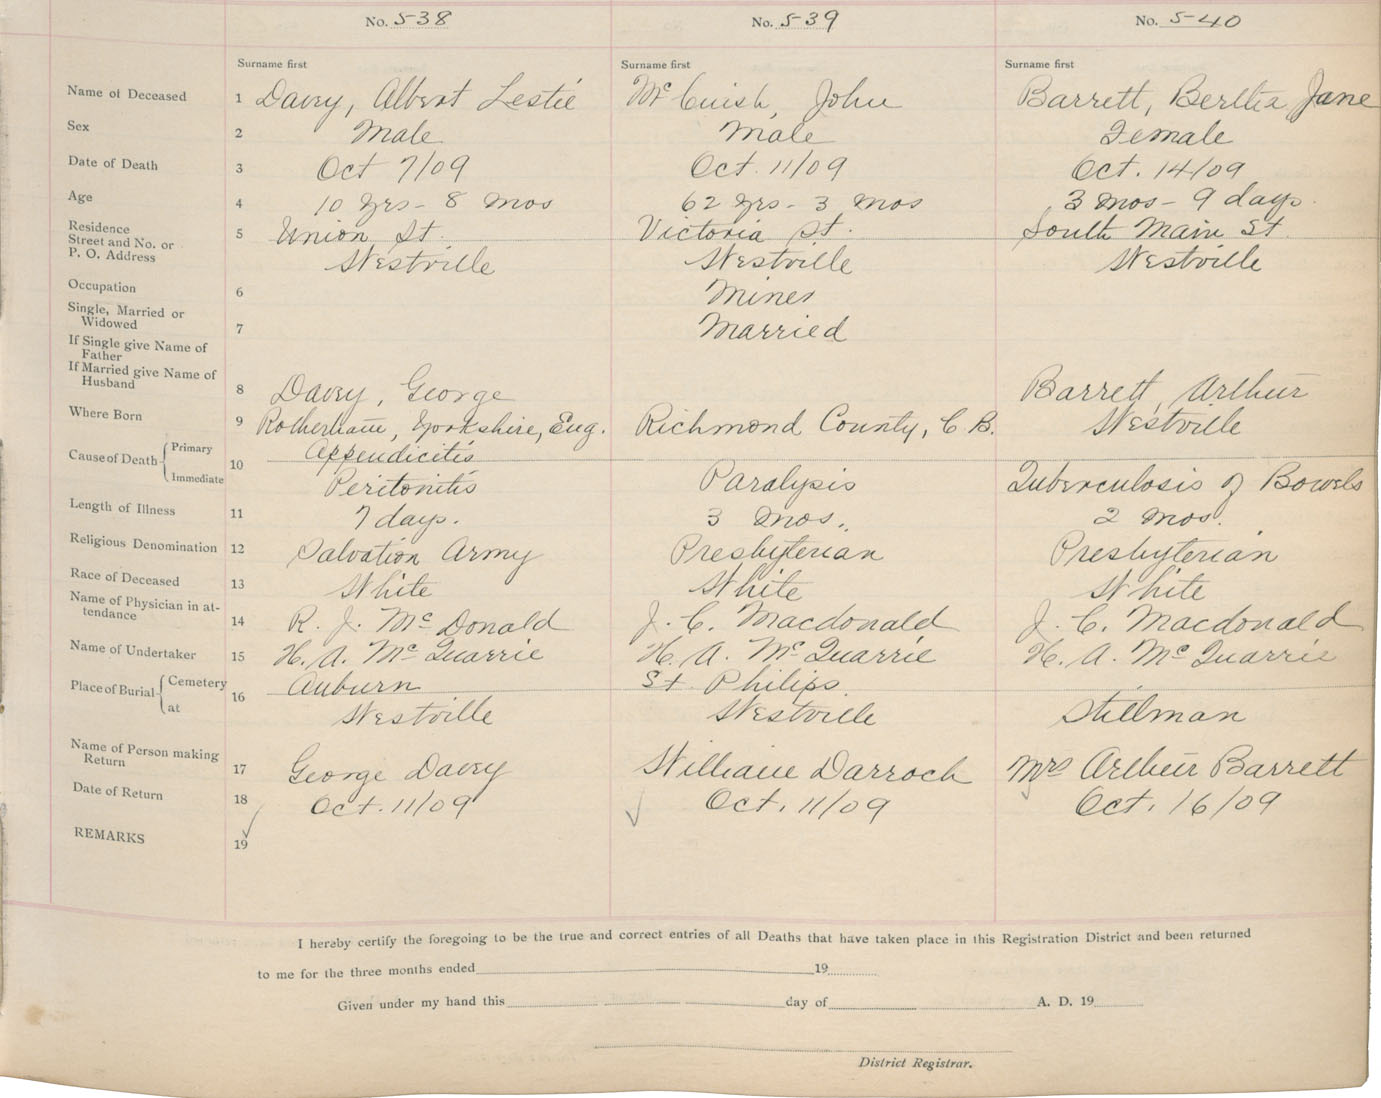 No. 538 No. 539 No. 540
Surname first Surname first Surname first
Name of Deceased 1 Davey, Albert Leslie McCuish, John Barrett, Bertha Jane
Sex 2 Male Male Female
Date of Death 3 Oct 7/09 Oct. 11/09 Oct. 14/09
Age 4 10 yrs - 8 mos 62 yrs - 3 mos 3 mos - 9 days
Residence
Street and No. or 5 Union St. Victoria St. South Main St.
P. O. Address Westville Westville Westville
Occupation 6 Miner
Single, Married or
Widowed 7 Married
If Single give Name of
Father
If Married give Name of
Husband 8 Davey, George Barrett, Arthur
Where Born 9 Rotherham, Yorkshire, Eng. Richmond County, C. B. Westville
Cause of Death Primary 10 Appendicitis
Immediate Peritonitis Paralysis Tuberculosis of Bowels
Length of Illness 11 7 days. 3 mos. 2 mos.
Religious Denomination 12 Salvation Army Presbyterian Presbyterian
Race of Deceased 13 White White White
Name of Physician in at-
tendance 14 R. J. McDonald J. C. Macdonald J. C. Macdonald
Name of Undertaker 15 H. A. McQuarrie H. A. McQuarrie H. A. McQuarrie
Place of Burial Cemetery 16 Auburn St. Philips
at Westville Westville Stillman
Name of Person making
Return 17 George Davey William Darroch Mrs Arthur Barrett
Date of Return 18 Oct. 11/09 Oct. 11/09 Oct. 16/09
REMARKS 19
I hereby certify the foregoing to be the true and correct entries of all Deaths that have taken place in this Registration District and been returned
to me for the three months ended 19
Given under my hand this day of A. D. 19
District Registrar.